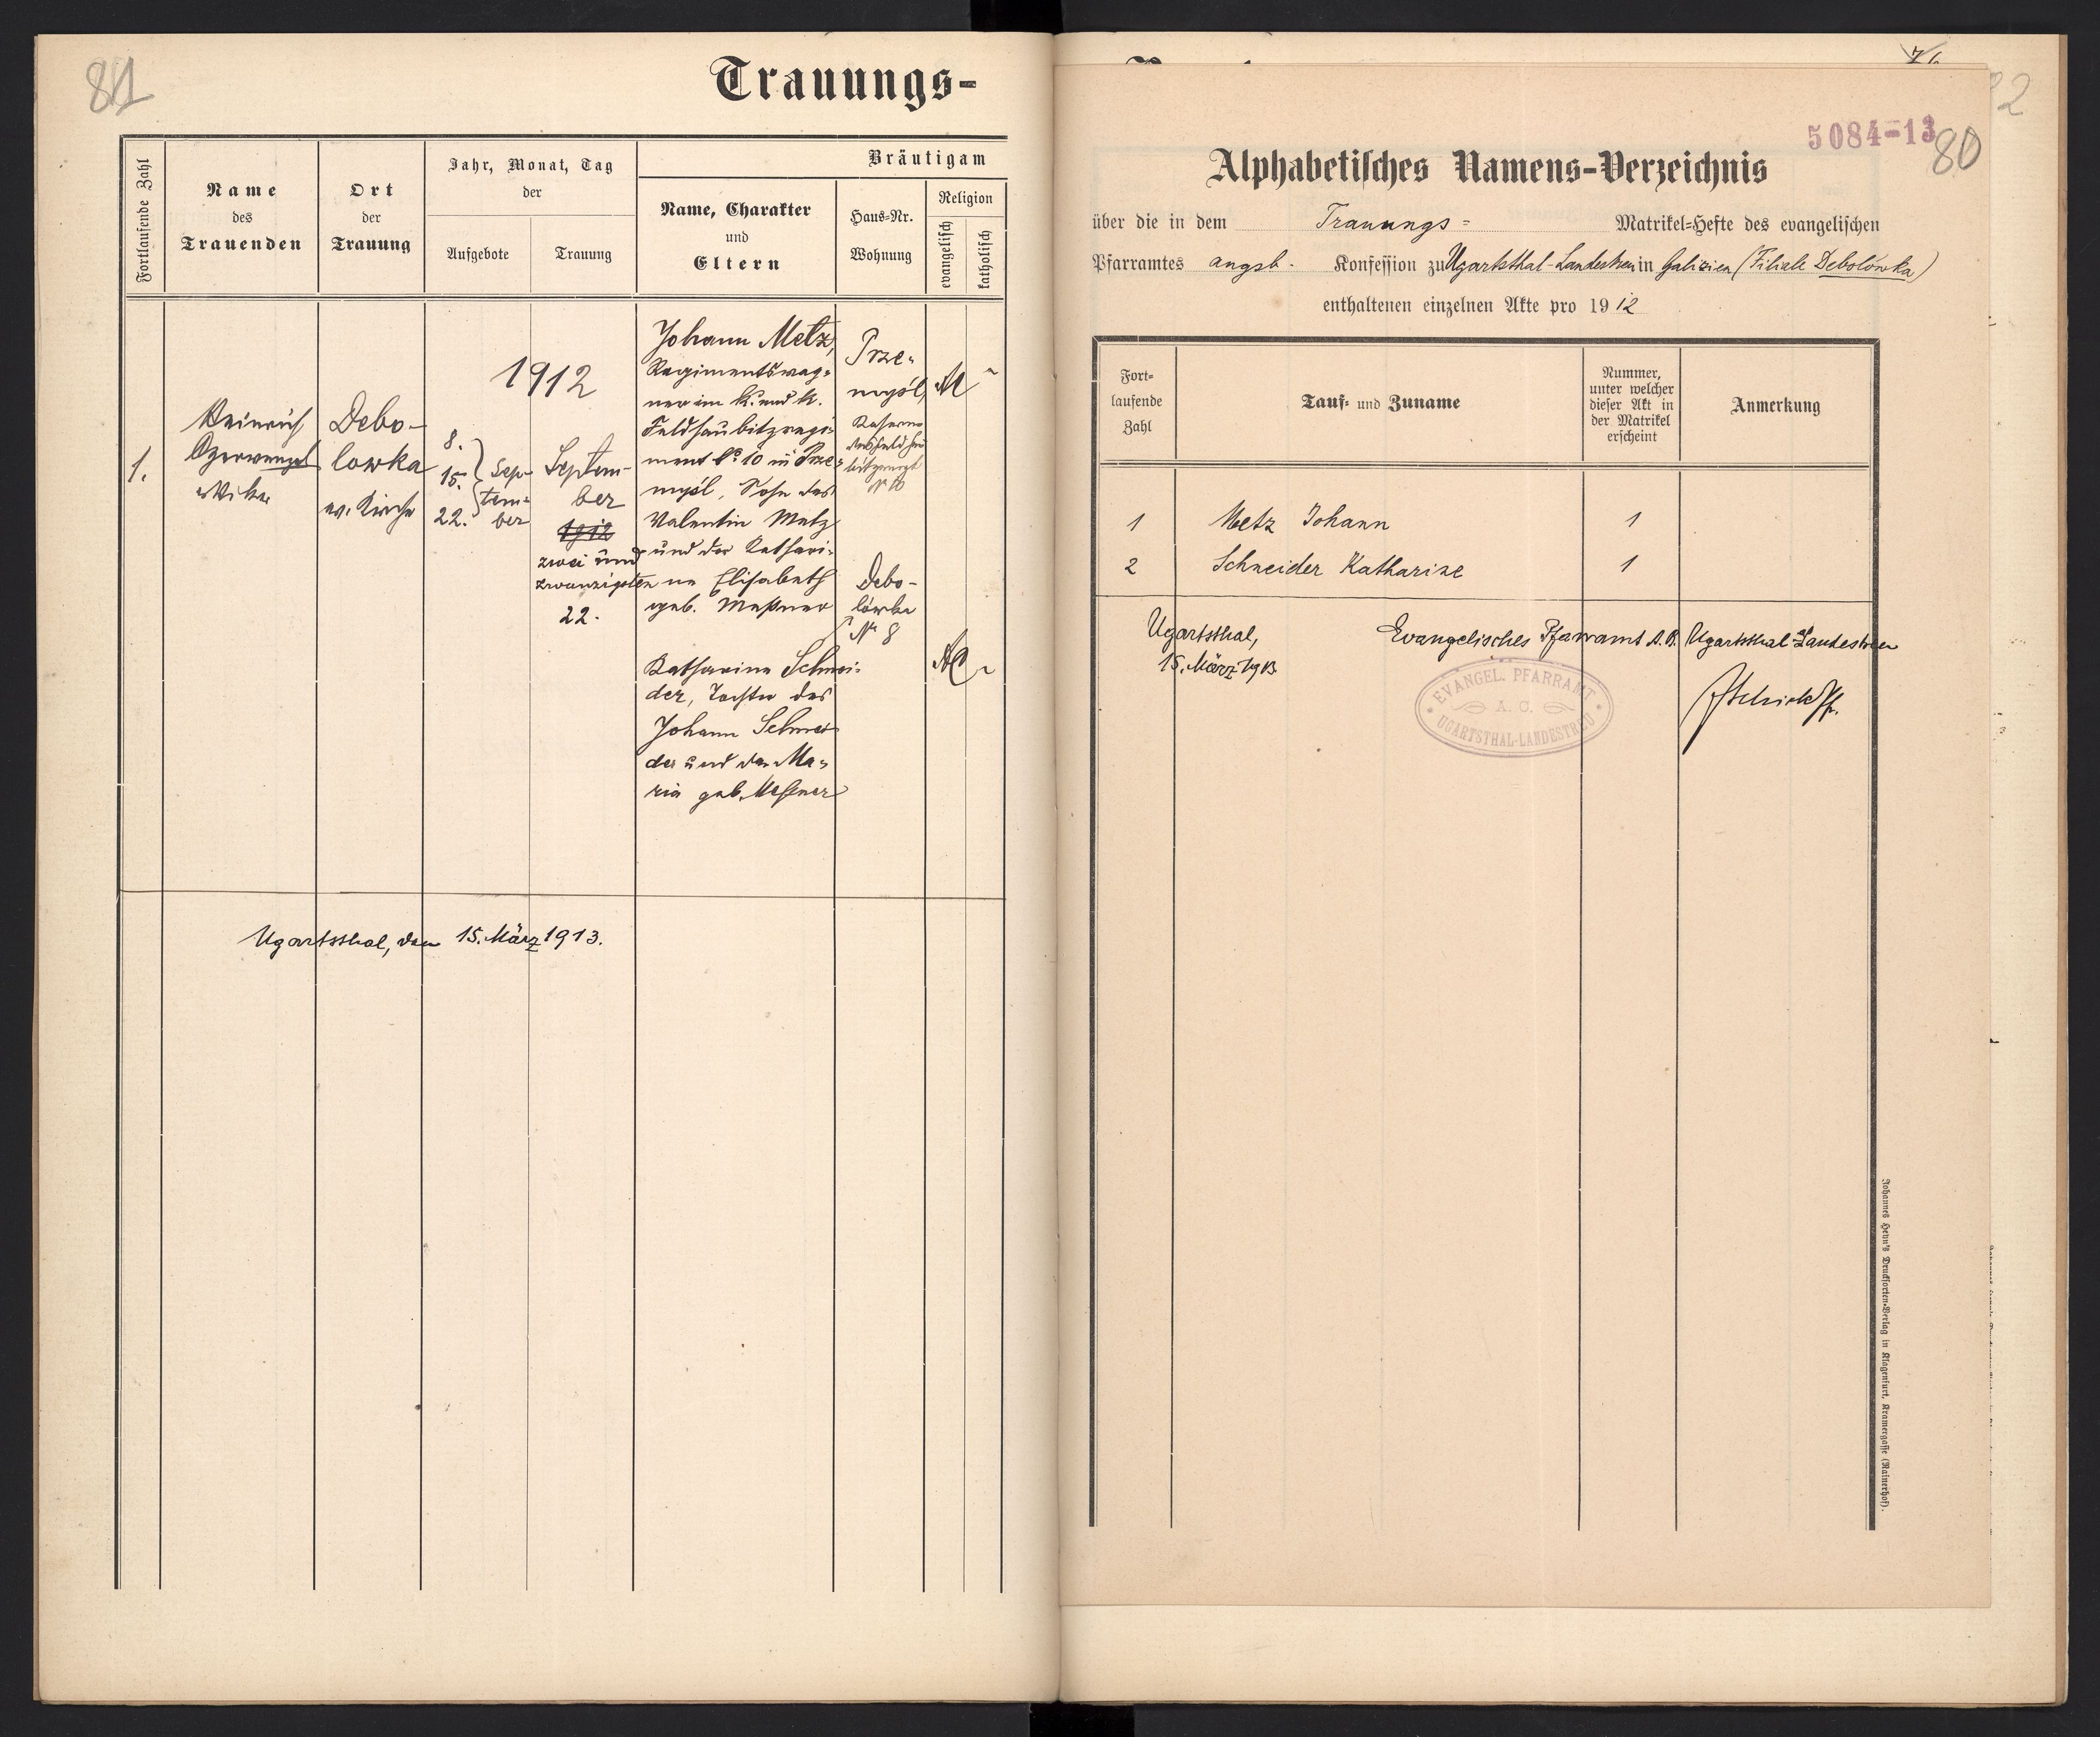 81
Trauungs-
Fortlaufende Zahl
Name
des
Trauenden
Ort
der
Trauung
Jahr, Monat, Tag
der
Aufgebote
Trauung
Bräutigam
Name, Charakter
und
Eltern
Haus-Nr.
Wohnung
Religion
evangelisch
katholisch
1.
Heinrich
Vikar
Debo-
lowka
ev. Kirche
1912
8.
15.
22.
Sep-
tem-
ber
Septem-
ber
1912
zwei und
zwanzigsten
22.
Johann Metz,
Regimentswag-
ner im k. und k.
Feldhaubitzregi-
ment No 10 in Prze-
mysl, Sohn des
Valentin Metz
und der Kathari-
na Elisabeth
geb. Meßner
Prze-
mysl,
Kaserne
No 10
Debo-
lówka
Nr 8
Katharina Schnei-
der, Tochter des
Johann Schnei-
der und der Ma-
ria geb. Meßner
Ugartsthal, den 15. März 1913.
5084-13
80
Alphabetisches Namens-Verzeichnis
über die in dem Trauungs- Matrikel-Hefte des evangelischen
Pfarramtes augsb. Konfession zu Ugartsthal-Landestreu in Galizien (Filiale Debolówka)
enthaltenen einzelnen Akte pro 1912
Fort-
laufende
Zahl
Tauf- und Zuname
Nummer,
unter welcher
dieser Akt in
der Matrikel
erscheint
Anmerkung
1 Metz Johann 1
2 Schneider Katharine 1
Ugartsthal,
15. März 1913
Evangelisches Pfarramt A.B. Ugartsthal-Landestreu
EVANGEL. PFARRAMT
A. C.
UGARTSTHAL-LANDESTREU
Johannes Heyn's Drucksorten-Verlag in Klagenfurt, Kramergasse (Rainerhof).